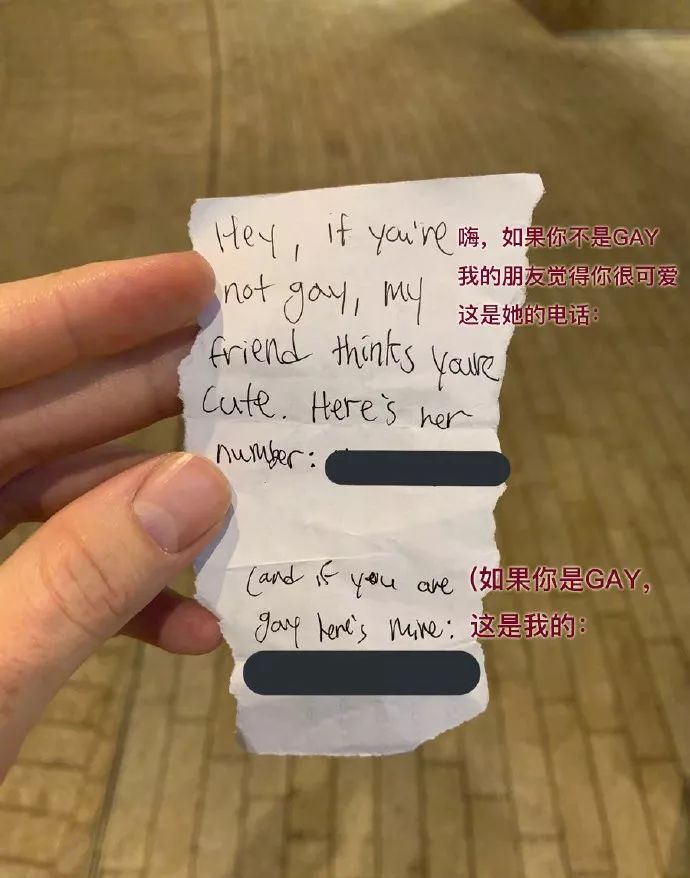 Hey, if you're
not gay, my
friend thinks youre
cute. Here's her
number:
(and if you are
gay here's mine:
嗨，如果你不是GAY
我的朋友觉得你很可爱
这是她的电话：
(如果你是GAY，
这是我的：